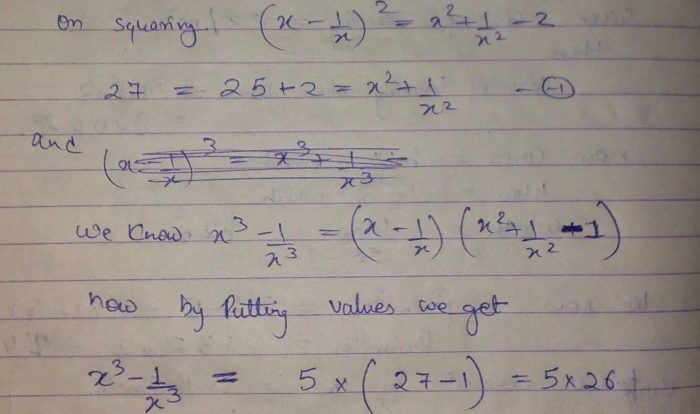 On squaring. (x - 1/x)² = x² + 1/x² - 2
27 = 25 + 2 = x² + 1/x² - ①
and
(x - 1/x)³ = x³ + 1/x³
we know x³ - 1/x³ = (x - 1/x) (x² + 1/x² - 1)
now by Putting values we get
x³ - 1/x³ = 5 × (27 - 1) = 5 × 26